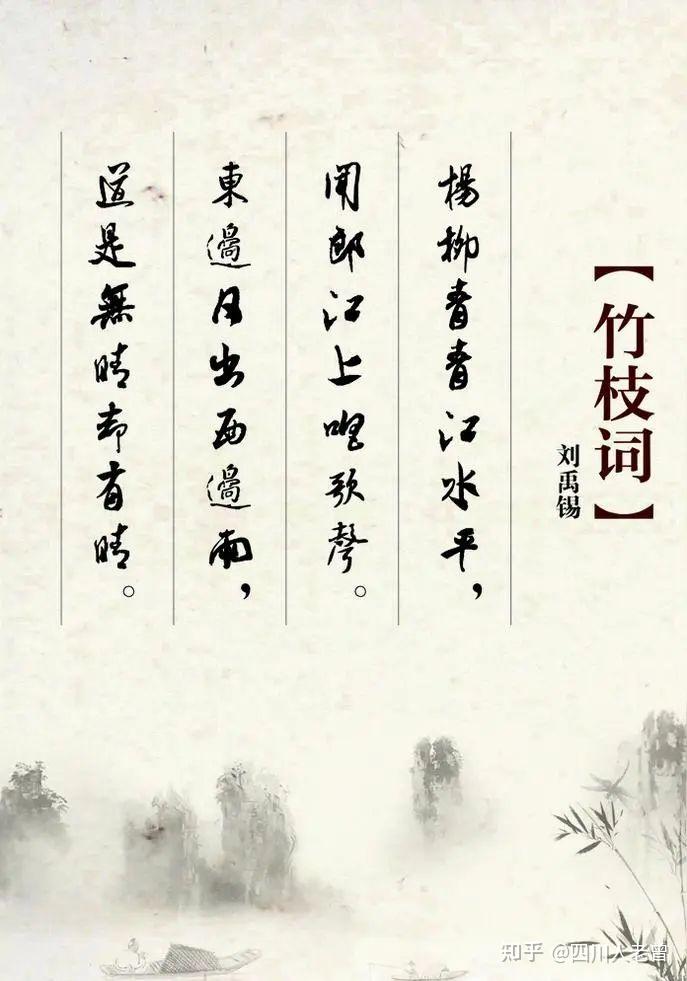 【竹枝词】
刘禹锡
楊柳青青江水平，
聞郎江上唱歌聲。
東邊日出西邊雨，
道是無晴却有晴。
知乎 @四川人老曾